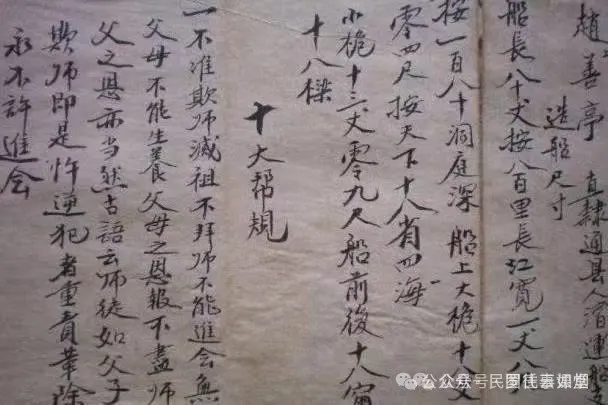 趙善亭 直隸通縣人漕運船
造船尺寸
船長八十丈按八百里長江寬一丈八尺
按一百八十洞庭深 船上大桅十八丈
零四尺按天下十八省四海
小桅十三丈零九尺船前後十八
十八樑
十大帮規
一不准欺师滅祖不拜师不能進会無
父母不能生養父母之恩報不盡师
父之恩亦当然古語云师徒如父子
欺师即是忤逆犯者重責革除
永不許進会
公众号